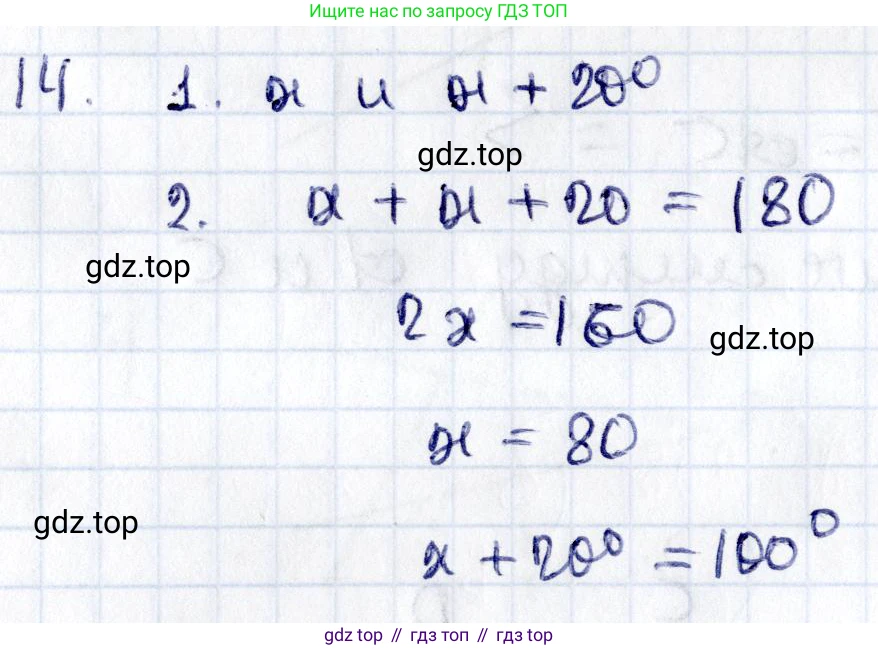 Ищите нас по запросу ГДЗ ТОП
14. 1. x и x + 20⁰
gdz.top
2. x + x + 20 = 180
gdz.top
2x = 160
gdz.top
x = 80
gdz.top
x + 20⁰ = 100⁰
gdz top // гдз топ // гдз top